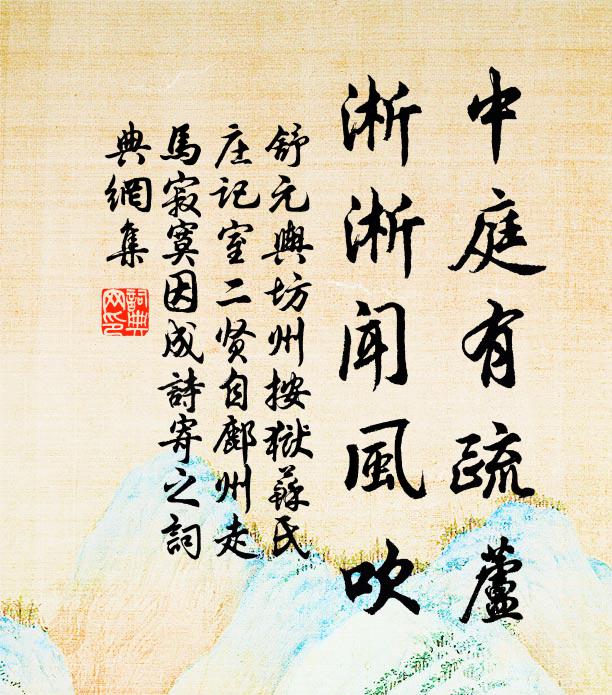 中庭有疏蘆
淅淅聞風吹
舒元輿坊州按獄蘇氏
庄记室二贤自鄜州走
馬寂寞因成詩寄之詞
典網集
詞典
网印